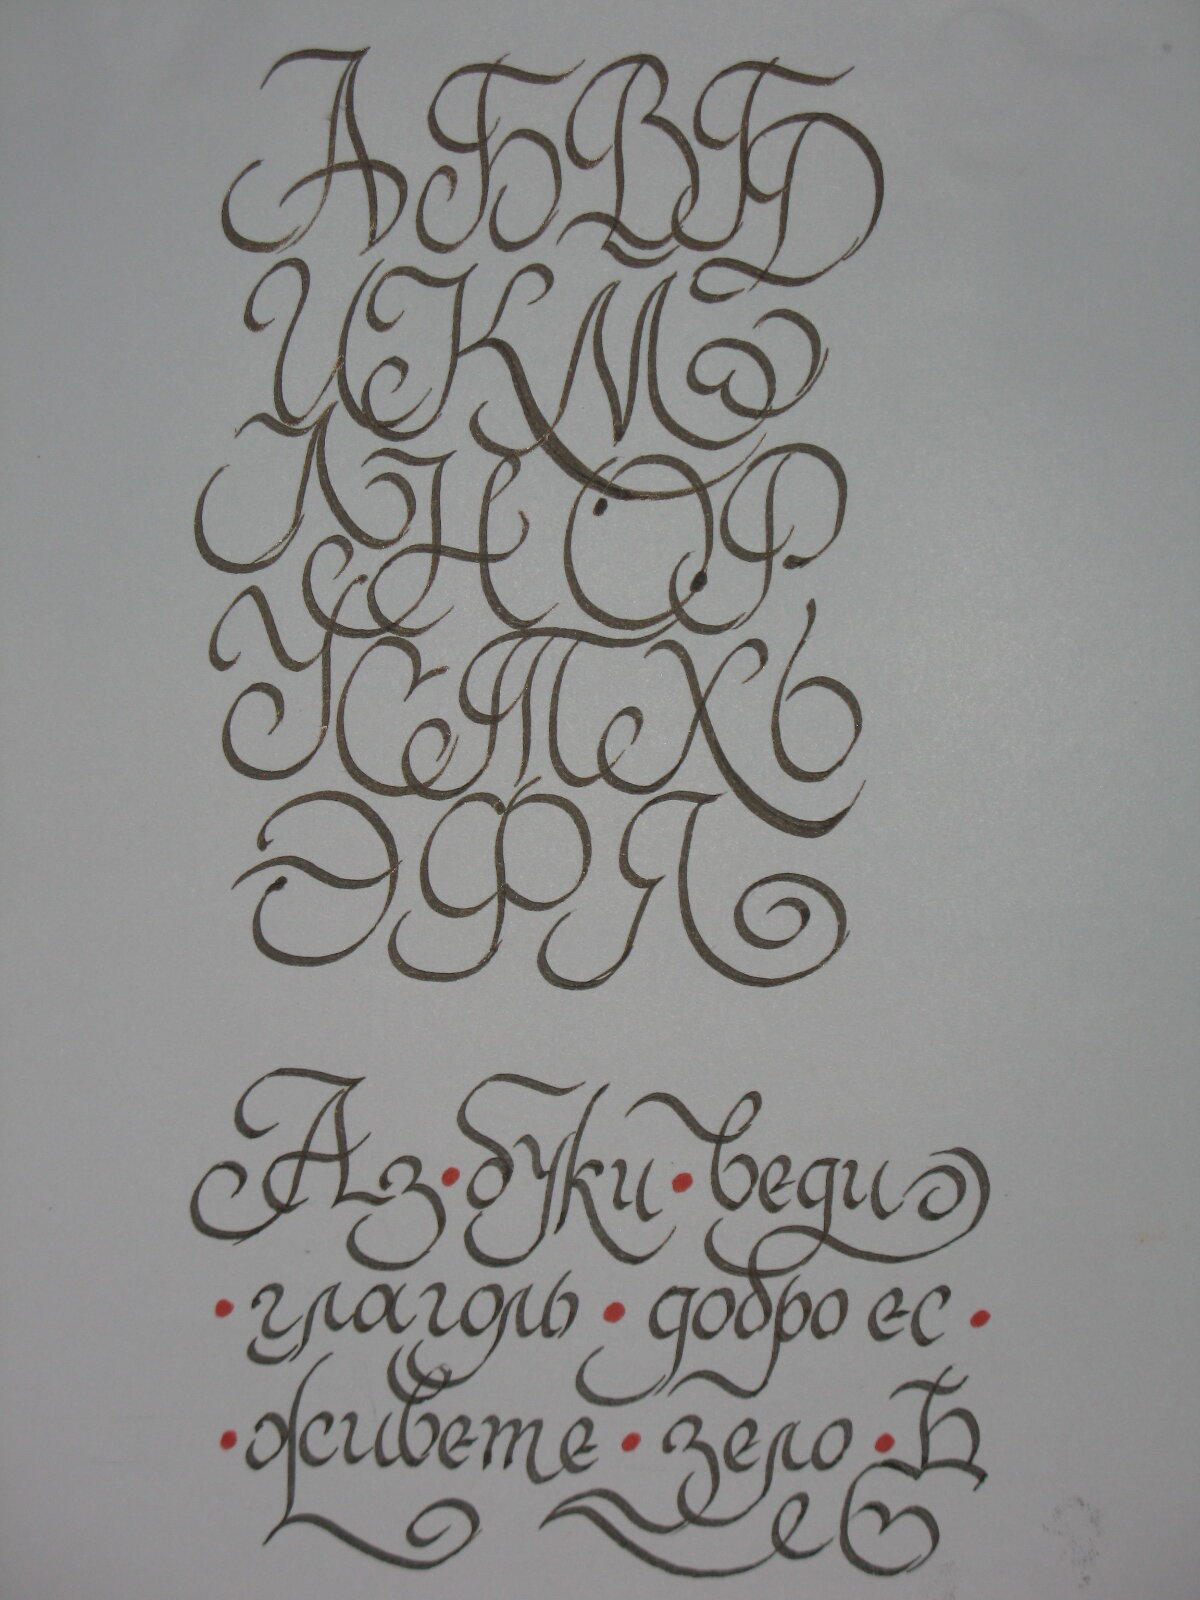 АБВГД
ИКМ
ЛНОР
УСТХЬ
ЭФЯ
Аз • буки • веди
• глаголь • добро ес •
• живете • зело • Б